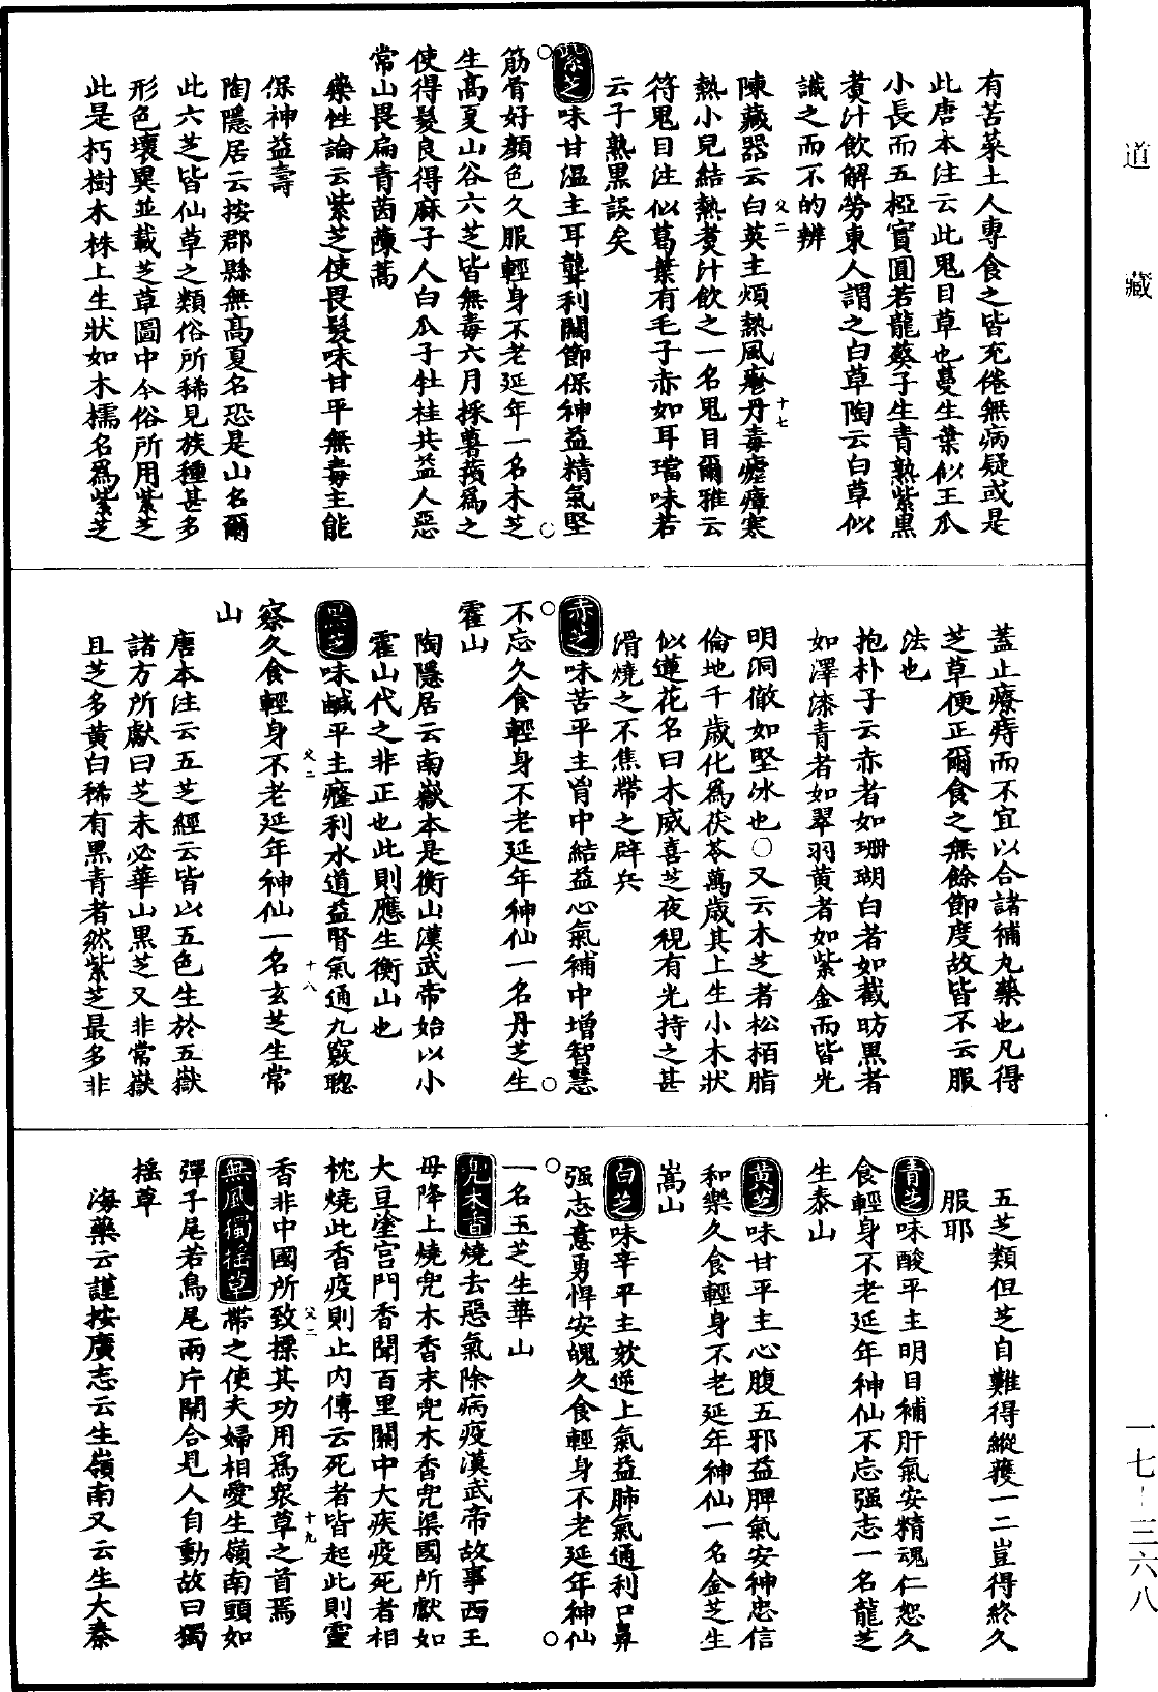 道藏
有苦菜土人專食之皆充倦無病疑或是
此唐本注云此鬼目草也蔓生葉似王瓜
小長而五椏實圓若龍葵子生青熟紫黑
煑汁飲解勞東人謂之白草陶云白草似
識之而不的辨
陳藏器云白英主煩熱風𤺋丹毒瘧瘴寒
熱小兒結熱煑汁飲之一名鬼目爾雅云
符鬼目注似葛葉有毛子赤如耳璫味若
云子熟黑誤矣
父二
十七
紫芝味甘溫主耳聾利關節保神益精氣堅
筋骨好顏色久服輕身不老延年一名木芝
生高夏山谷六芝皆無毒六月採薯蕷爲之
使得髮良得麻子人白瓜子牡桂共益人惡
常山畏扁青茵蔯蒿
藥性論云紫芝使畏髮味甘平無毒主能
保神益壽
陶隱居云按郡縣無高夏名恐是山名爾
此六芝皆仙草之類俗所稀見族種甚多
形色壞異並載芝草圖中今俗所用紫芝
此是朽樹木株上生狀如木檽名爲紫芝
蓋止療痔而不宜以合諸補丸藥也凡得
芝草便正爾食之無餘節度故皆不云服
法也
抱朴子云赤者如珊瑚白者如截昉黑者
如澤漆青者如翠羽黄者如紫金而皆光
明洞徹如堅冰也〇又云木芝者松栢脂
倫地千歲化爲茯苓萬歲其上生小木狀
似蓮花名曰木威喜芝夜視有光持之甚
滑燒之不焦帶之辟兵
赤芝味苦平主胷中結益心氣補中增智慧
不忘久食輕身不老延年神仙一名丹芝生
霍山
陶隱居云南嶽本是衡山漢武帝始以小
霍山代之非正也此則應生衡山也
黑芝味鹹平主癃利水道益腎氣通九竅聰
察久食輕身不老延年神仙一名玄芝生常
山
父二
十八
唐本注云五芝經云皆以五色生於五嶽
諸方所獻曰芝未必華山黑芝又非常嶽
且芝多黄白稀有黑青者然紫芝最多非
五芝類但芝自難得縱獲一二豈得終久
服耶
青芝味酸平主明目補肝氣安精魂仁恕久
食輕身不老延年神仙不忘强志一名龍芝
生泰山
黄芝味甘平主心腹五邪益脾氣安神忠信
和樂久食輕身不老延年神仙一名金芝生
嵩山
白芝味辛平主欬逆上氣益肺氣通利口鼻
强志意勇悍安魄久食輕身不老延年神仙
一名玉芝生華山
兜木香燒去惡氣除病疫漢武帝故事西王
母降上燒兜木香末兜木香兜渠國所獻如
大豆塗宫門香聞百里關中大疾疫死者相
枕燒此香疫則止内傳云死者皆起此則靈
香非中國所致摽其功用爲衆草之首焉
父二
十九
無風獨摇草帶之使夫婦相愛生嶺南頭如
彈子尾若鳥尾兩片開合見人自動故曰獨
摇草
海藥云謹按廣志云生嶺南又云生大秦
一七—三六八